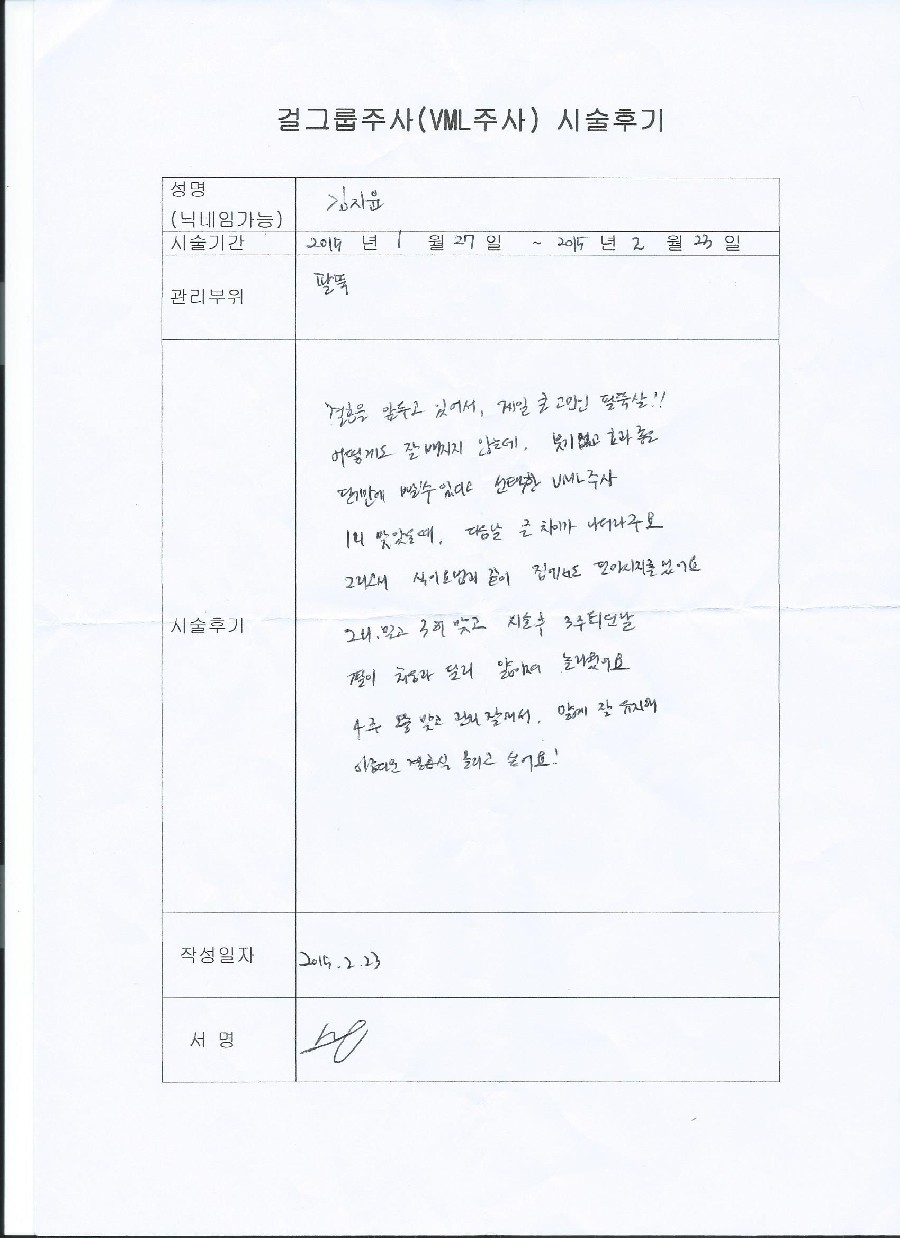 걸그룹주사(VML주사) 시술후기
성명
(닉네임가능)
김지윤
시술기간
2015 년 1 월 27 일 ~ 2015 년 2 월 23 일
관리부위
팔뚝
시술후기
결혼을 앞두고 있어서, 제일 큰 고민인 팔뚝살!!
어떻게도 잘 빠지지 않는데, 붓기 없고 효과 좋은
선택한 VML주사
1회 맞았을때, 다음날 큰 차이가 나더라구요
그래서 식이요법과 같이
3회 맞고 시술후 3주되던날
팔이 처음과 달리 얇아져 놀라웠어요
4주 맞고 관리 잘해서, 얇게 잘 유지해
아름다운 결혼식 올리고 싶어요!
작성일자
2015.2.23
서 명